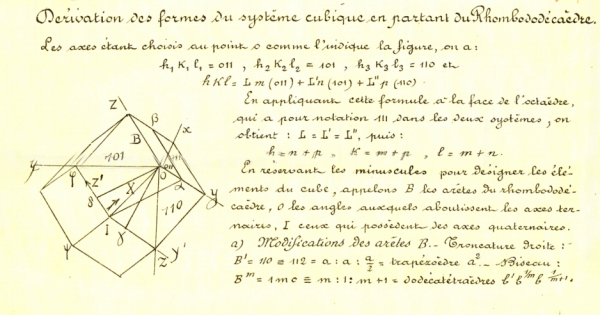 Dérivation des formes du système cubique en partant du Rhombododécaèdre.
Les axes étant choisis au point o comme l'indique la figure, on a :
h₁ K₁ l₁ = 011 , h₂ K₂ l₂ = 101 , h₃ K₃ l₃ = 110 et
h K l = L m (011) + L'n (101) + L''p (110)
En appliquant cette formule à la face de l'octaèdre,
qui a pour notation 111 dans les deux systèmes, on
obtient : L = L' = L'', puis :
h = n + p , K = m + p , l = m + n.
En réservant les minuscules pour désigner les élé-
ments du cube, appelons B les arêtes du rhombododé-
caèdre, O les angles auxquels aboutissent les axes ter-
naires, I ceux qui possèdent des axes quaternaires.
a) Modifications des arêtes B. – Troncature droite :
B' = 110 ≡ 112 = a : a : a/2 = trapézoèdre a². – Biseau :
Bᵐ = 1m0 ≡ m : 1 : m+1 = dodécatétraèdres b¹ b^1/m b^1/m+1.
Z
β
B
x
y
101
O
φ
z'
X
α
δ
110
y
I
γ
ψ
Z
y'